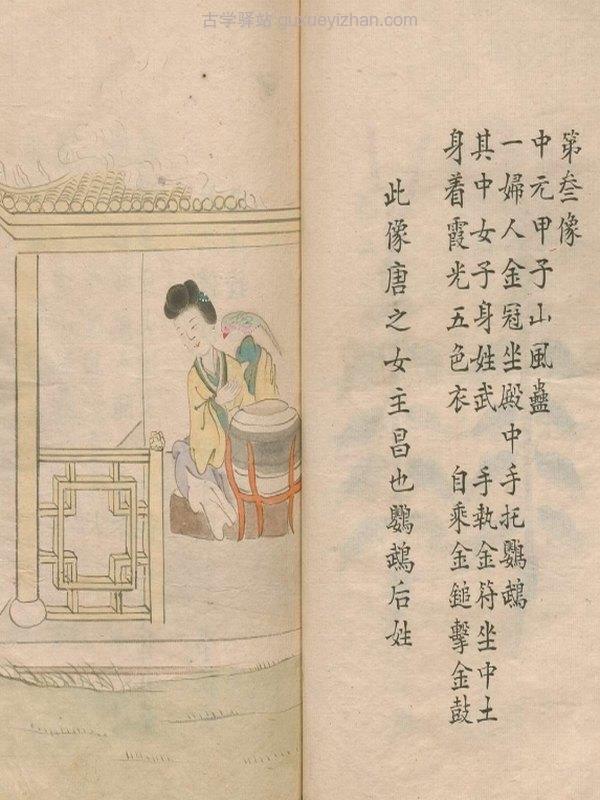 古学驿站 guxueyizhan.com
第叁像
中元甲子山風蠱
一婦人金冠坐殿中手托鸚鵡
其中女子身姓武　手執金符坐中土
身着霞光五色衣　自乘金鎚擊金鼓
此像唐之女主昌也鸚鵡后姓